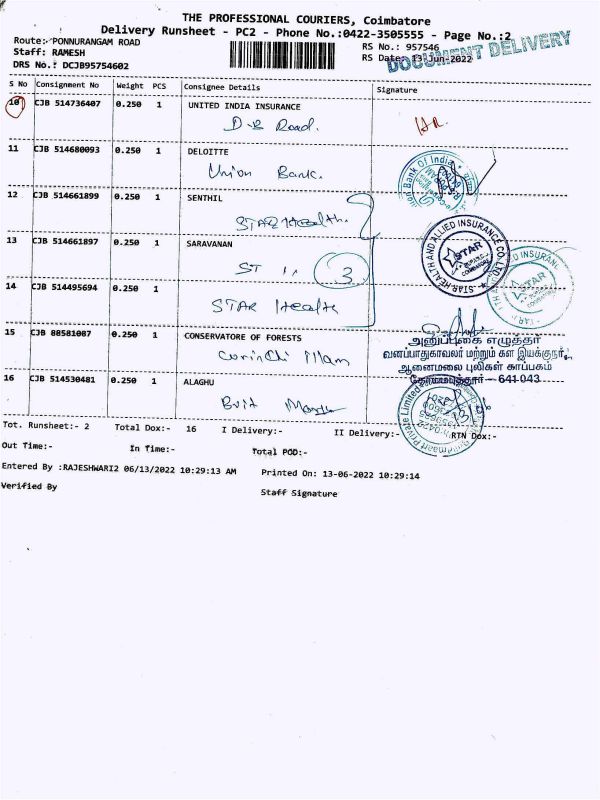 THE PROFESSIONAL COURIERS, Coimbatore
Delivery Runsheet - PC2 - Phone No.:0422-3505555 - Page No.:2
Route: PONNURANGAM ROAD
RS No.: 957546
Staff: RAMESH
RS Date: 13-Jun-2022
DOCUMENT DELIVERY
DRS No.: DCJB95754602
S No Consignment No Weight PCS Consignee Details Signature
10 CJB 514736407 0.250 1 UNITED INDIA INSURANCE
D-B Road.
11 CJB 514680093 0.250 1 DELOITTE
Union Bank.
Union Bank Of India
12 CJB 514661899 0.250 1 SENTHIL
STAR Health.
13 CJB 514661897 0.250 1 SARAVANAN
ST 11 3
STAR HEALTH AND ALLIED INSURANCE CO. LTD
STAR
COIMBATORE
STAR
14 CJB 514495694 0.250 1
STAR Health
15 CJB 08581087 0.250 1 CONSERVATORE OF FORESTS
அனுப்புகை எழுத்தர்
வனப்பாதுகாவலர் மற்றும் கள இயக்குநர்,
ஆனைமலை புலிகள் காப்பகம்
கோயமுத்தூர் - 641 043
16 CJB 514530481 0.250 1 ALAGHU
Private Limited
Tot. Runsheet:- 2 Total Dox:- 16 I Delivery:- II Delivery:- RTN Dox:-
Out Time:- In Time:- Total POD:-
Entered By :RAJESHWARI2 06/13/2022 10:29:13 AM Printed On: 13-06-2022 10:29:14
Verified By
Staff Signature